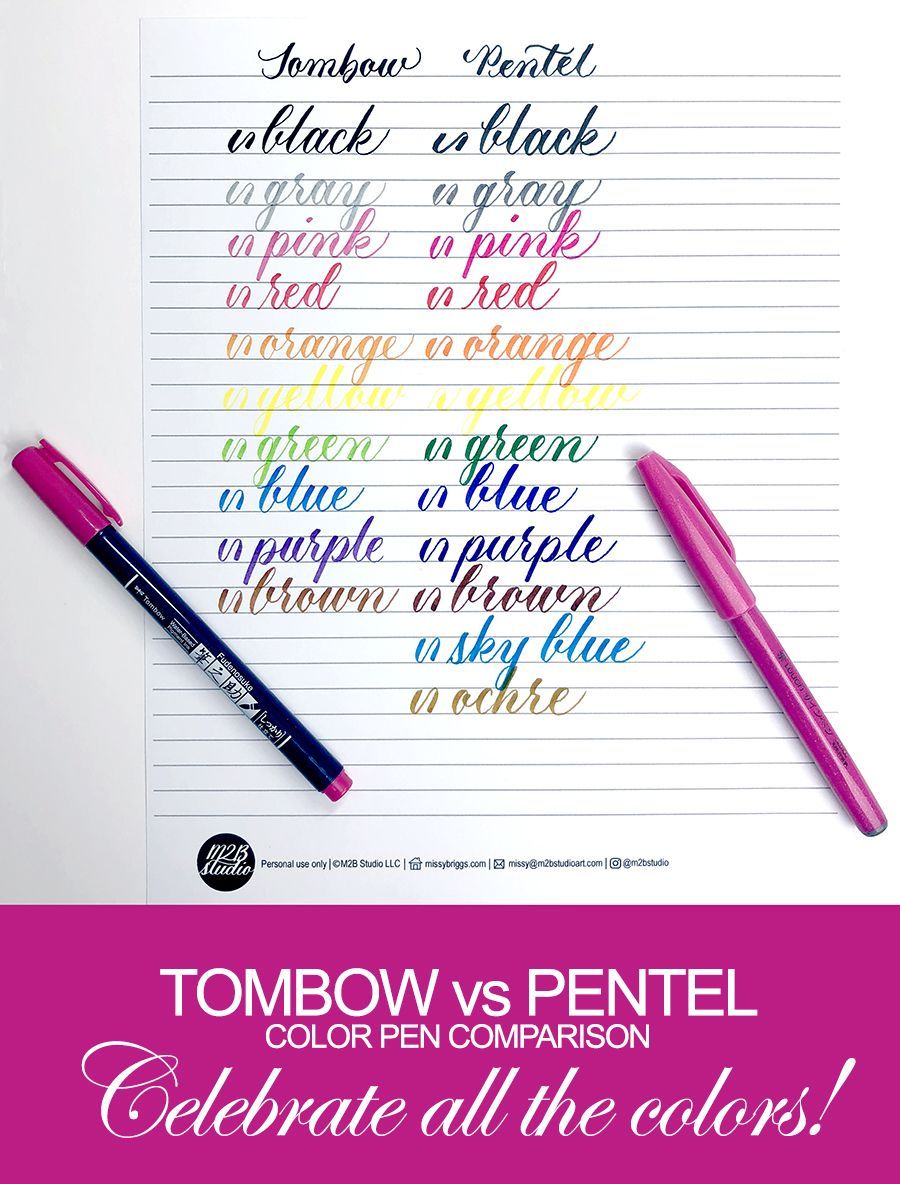 Tombow Pentel
black black
gray gray
pink pink
red red
orange orange
yellow yellow
green green
blue blue
purple purple
brown brown
sky blue
ochre
Tombow
Water-Based
Pigment Ink
Fudenosuke
筆之助
しっかり
仕立て
M2B
studio
Personal use only | ©M2B Studio LLC | missybriggs.com | missy@m2bstudioart.com | @m2bstudio
TOMBOW vs PENTEL
COLOR PEN COMPARISON
Celebrate all the colors!